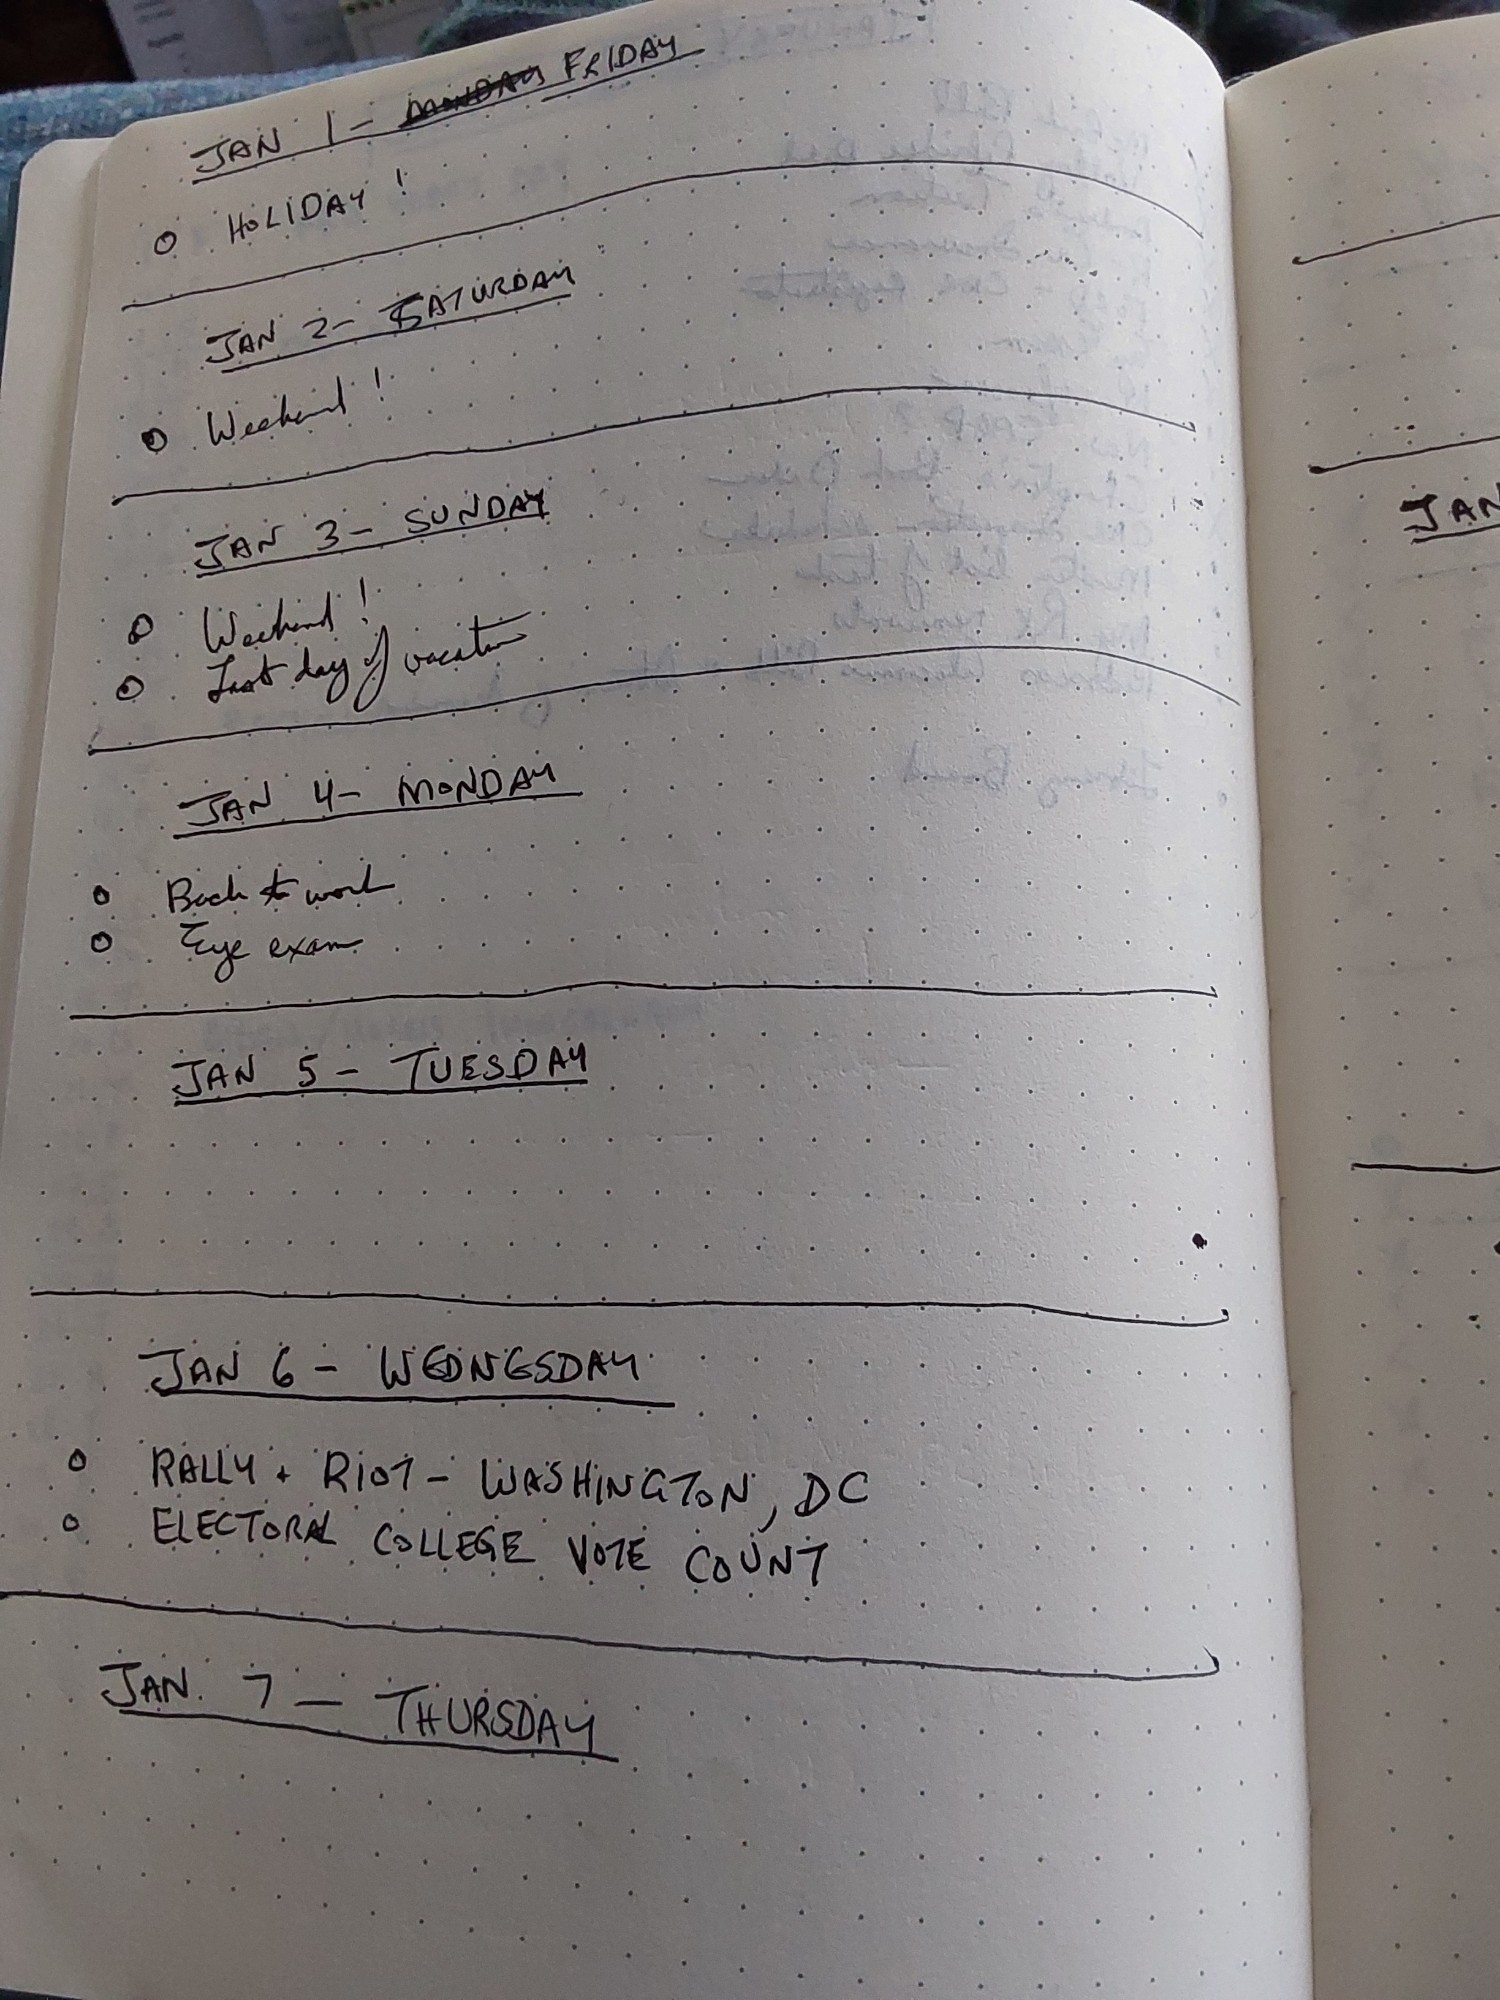 JAN 1 - MONDAY FRIDAY
HOLIDAY!
JAN 2 - SATURDAY
Weekend!
JAN 3 - SUNDAY
Weekend!
Last day of vacation
JAN 4 - MONDAY
Back to work
Eye exam
JAN 5 - TUESDAY
JAN 6 - WEDNESDAY
RALLY + RIOT - WASHINGTON, DC
ELECTORAL COLLEGE VOTE COUNT
JAN. 7 - THURSDAY
JAN